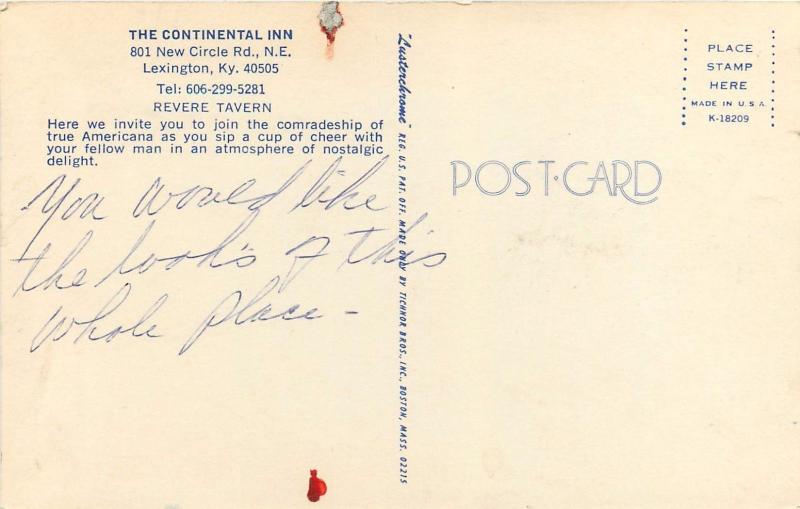 THE CONTINENTAL INN
801 New Circle Rd., N.E.
Lexington, Ky. 40505
Tel: 606-299-5281
REVERE TAVERN
Here we invite you to join the comradeship of
true Americana as you sip a cup of cheer with
your fellow man in an atmosphere of nostalgic
delight.
You would like
the look's of this
whole place -
"Lusterchrome" REG. U.S. PAT. OFF. MADE ONLY BY TICHNOR BROS., INC., BOSTON, MASS. 02215
PLACE
STAMP
HERE
MADE IN U.S.A.
K-18209
POST-CARD